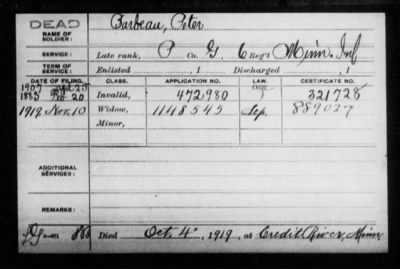 DEAD
NAME OF SOLDIER: Barbeau, Peter
SERVICE: Late rank, P Co. G, 6 Reg't Minn. Inf
TERM OF SERVICE: Enlisted , 1 Discharged , 1
DATE OF FILING. CLASS. APPLICATION NO. LAW. CERTIFICATE NO.
1907
1883 20 Invalid, 472980 321728
1919 Nov. 10 Widow, 1148545 Sep. 889027
Minor,
ADDITIONAL SERVICES:
REMARKS:
Died Oct. 4", 1919, at Credit River, Minn.